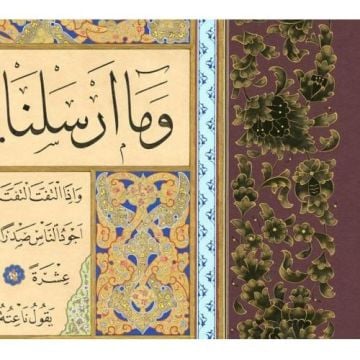 وَمَٓا اَرْسَلْنَا
وَاِذَا الْتَفَتَ الْتَفَتَ
اَجْوَدُ النَّاسِ صَدْرًا
عِشْرَةً
يَقُولُ نَاعِتُهُ